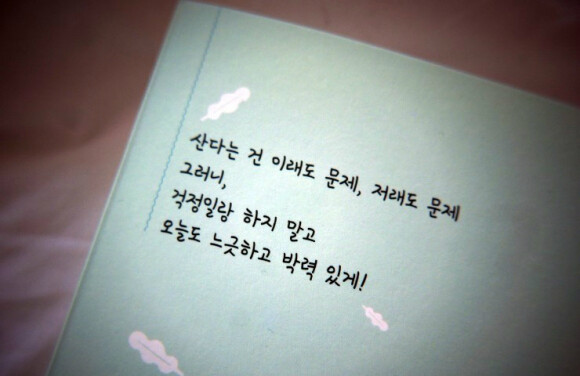 산다는 건 이래도 문제, 저래도 문제
그러니,
걱정일랑 하지 말고
오늘도 느긋하고 박력 있게!